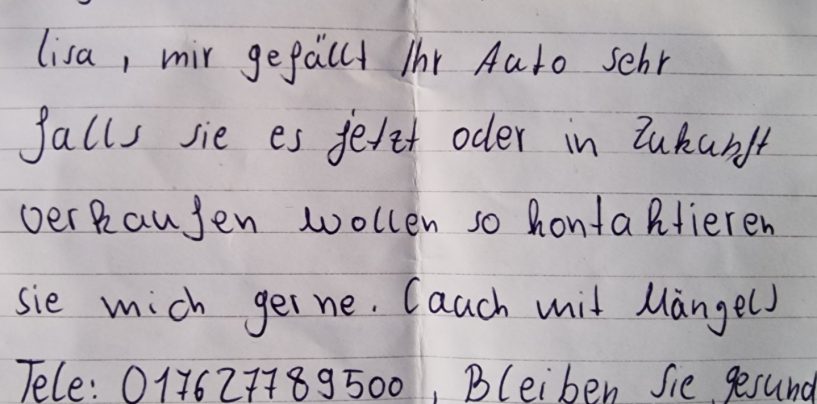 lisa, mir gefällt Ihr Auto sehr
falls sie es jetzt oder in Zukunft
verkaufen wollen so kontaktieren
sie mich gerne. (auch mit Mängel)
Tele: 017627789500, Bleiben Sie gesund